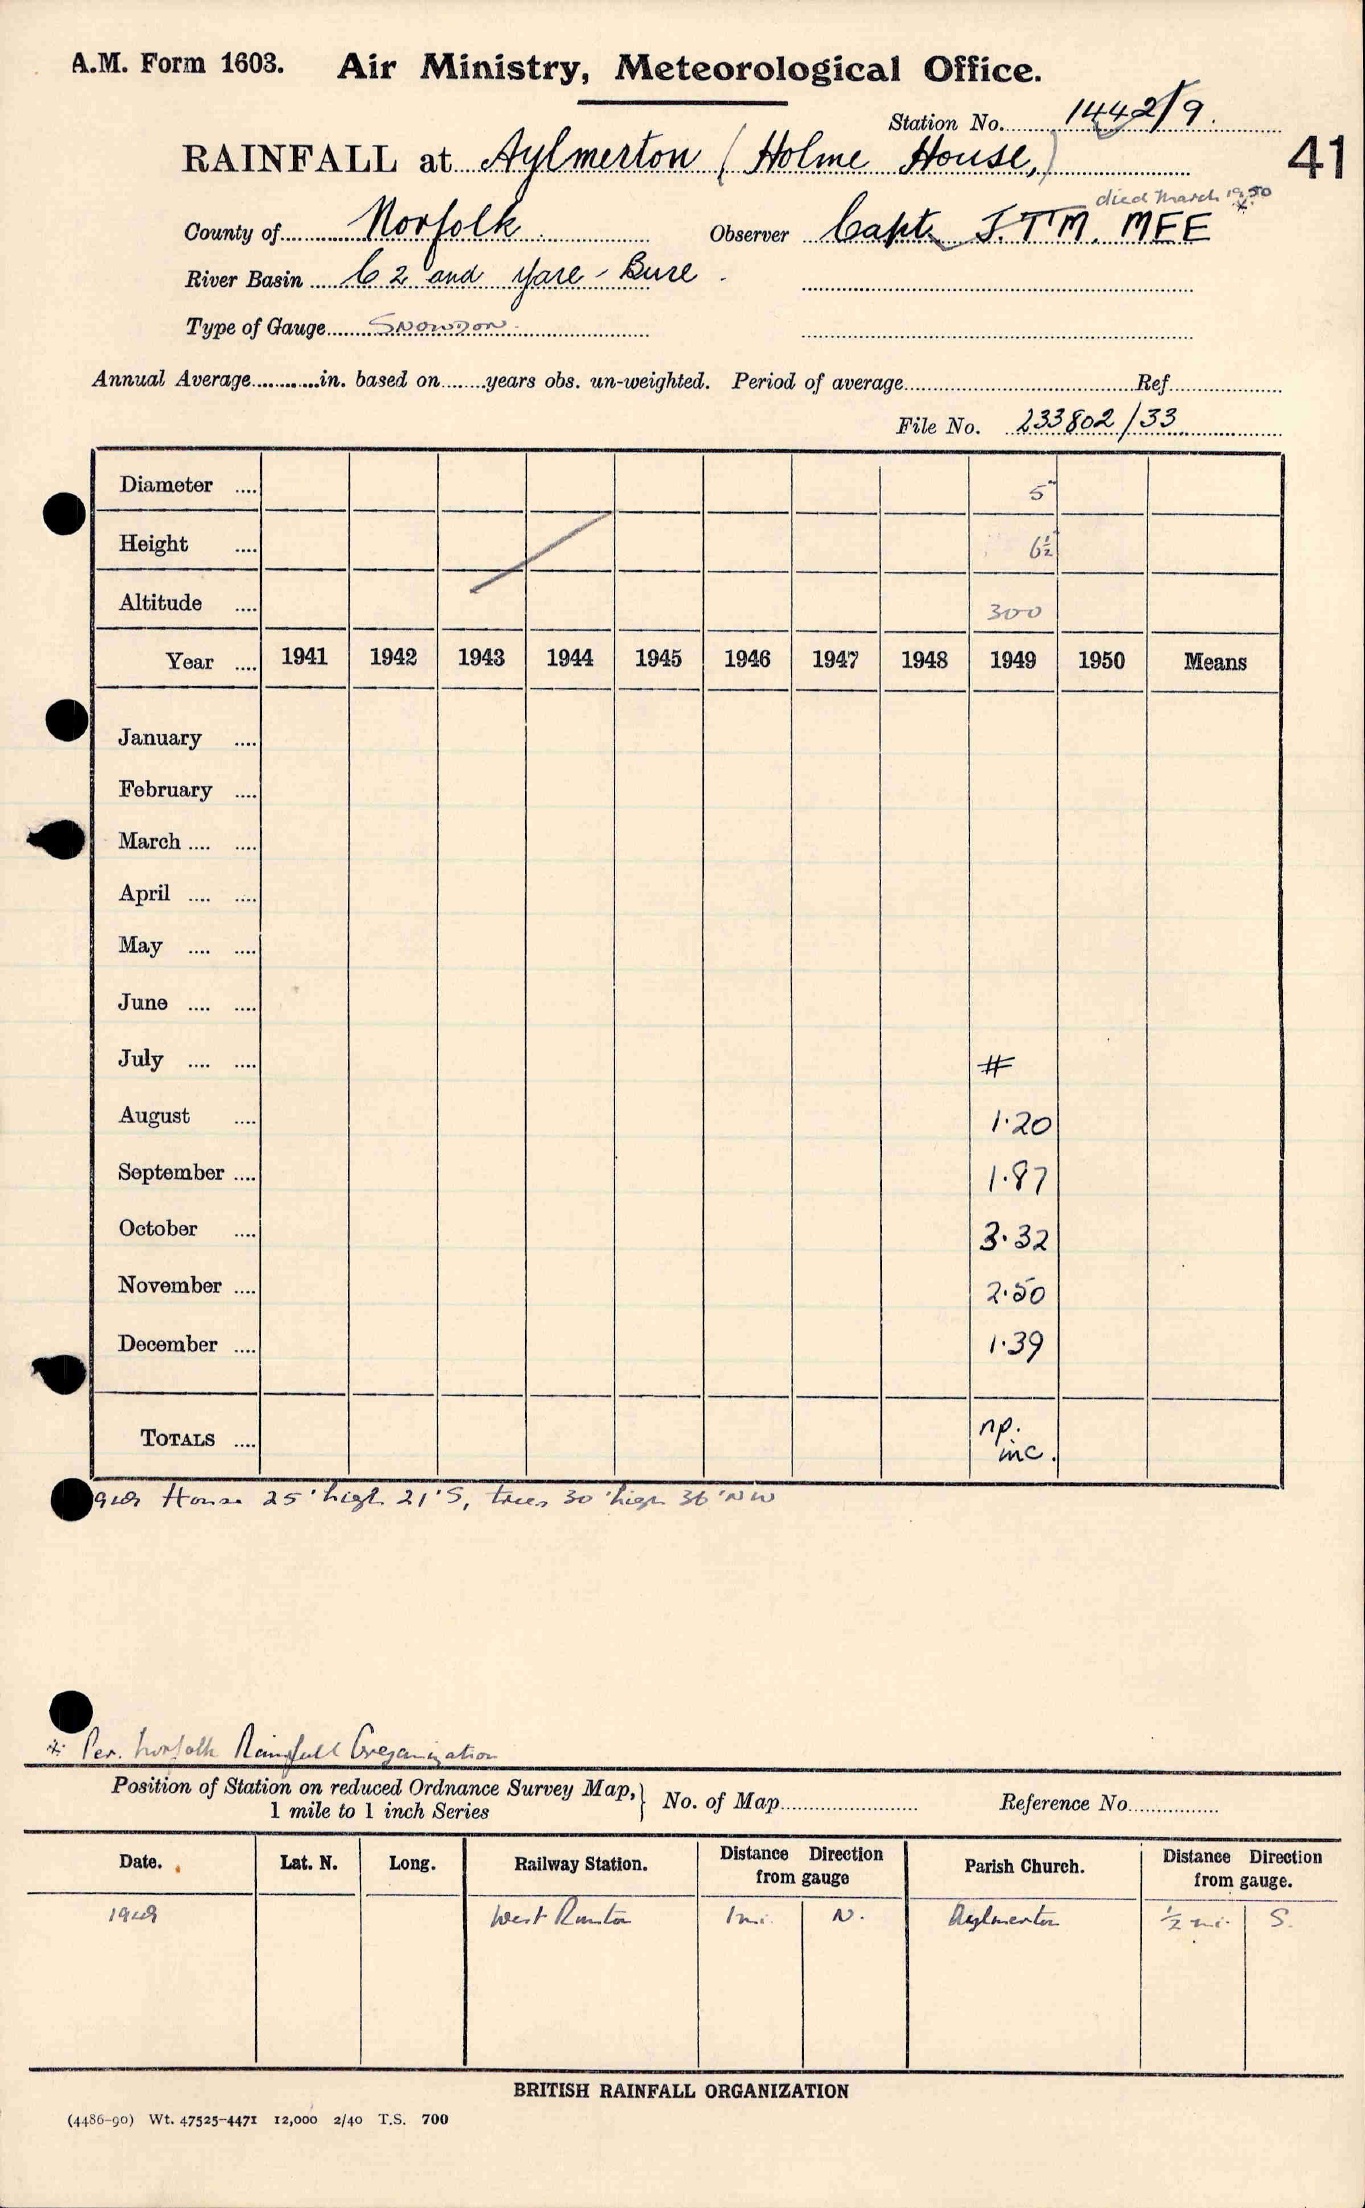 A.M. Form 1603. Air Ministry, Meteorological Office.
Station No. 1442/9.
RAINFALL at Aylmerton (Holme House,)
41
died March 1950 *
County of Norfolk Observer Capt. J.T.M. MEE
River Basin C 2 and Yare - Bure
Type of Gauge SNOWDON
Annual Average............in. based on........years obs. un-weighted. Period of average........Ref........
File No. 233802/33
Diameter .... 5"
Height .... 6½
Altitude .... 300
Year .... 1941 1942 1943 1944 1945 1946 1947 1948 1949 1950 Means
January ....
February ....
March .... ....
April .... ....
May .... ....
June .... ....
July .... .... #
August .... 1·20
September .... 1·87
October .... 3·32
November .... 2·50
December .... 1·39
TOTALS .... np. inc.
House 25' high 21' S, trees 30' high 36' NW
* Per. Norfolk Rainfall Organization
Position of Station on reduced Ordnance Survey Map, } No. of Map........ Reference No........
1 mile to 1 inch Series
Date. Lat. N. Long. Railway Station. Distance Direction from gauge Parish Church. Distance Direction from gauge.
1949 West Runton 1 mi. N. Aylmerton ½ mi. S.
BRITISH RAINFALL ORGANIZATION
(4486-90) Wt. 47525-4471 12,000 2/40 T.S. 700